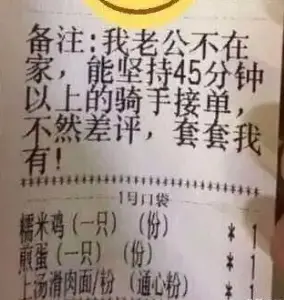 备注:我老公不在
家，能坚持45分钟
以上的骑手接单，
不然差评，套套我
有!
********************************
1号口袋
糯米鸡(一只) (份) * 1
煎蛋(一只) (份) * 1
上汤滑肉面/粉 (通心粉) * 1